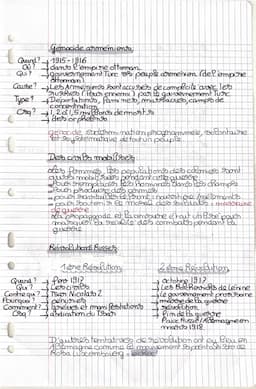 Génocide arménien
Quand? → 1915-1916
Où? → dans l'empire ottoman
Qui? → gouvernement Turc vs peuple arménien (de l'empire
ottoman)
Cause? → Les Arméniens sont accusés de complicité avec les
russes (leurs ennemis) par le gouvernement Turc
Type? → Déportations, famines, massacres, camps de
concentration
Csq? → 1,2 à 1,5 millions de morts
→ déserts
génocide: extermination programmée, volontaire
et systématique de tout un peuple.
Des civils mobilisés
Les femmes, les populations des colonies sont
aussi mobilisées pendant cette guerre
pour remplacer les hommes dans les champs
pour produire des armes
pour soutenir le moral des soldats: marraine
de guerre
La propagande et la censure
pendant la
guerre
Révolutions Russes
1ère Révolution
2ème Révolution
Quand? → Fév 1917
→ octobre 1917
Qui? →
→ Les Bolcheviks de Lénine
Contre qui? → Tsar Nicolas 2
→ Le gouvernement provisoire
Pourquoi? → pénuries
Comment? → grèves et manifestations
→ révolution
Csq? → abdication du Tsar
→ Fin de la guerre
Russie/Allemagne en
mars 1918
D'autres tentatives de révolution ont eu lieu en
Allemagne comme le mouvement spartakiste de
Rosa Luxembourg